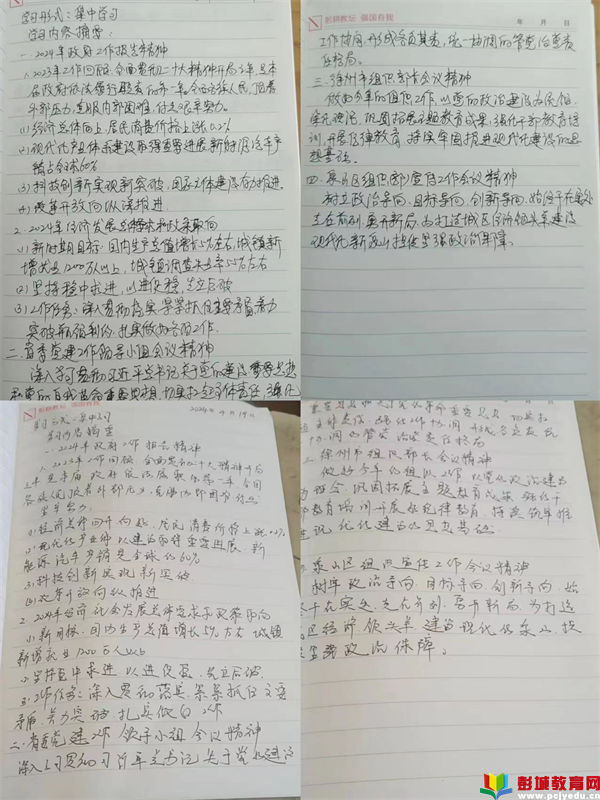 彭城教坛 强国有我
年 月 日
学习形式:集中学习
学习内容摘要:
一.2024年政府工作报告精神
1.2023年工作回顾:全面贯彻二十大精神开局之年,是本
届政府依法履行职责的第一年,全国各族人民,顶着
外部压力,克服内部困难,付出艰辛努力。
(1)经济总体回升,居民消费价格上涨0.2%
(2)现代化产业体系建设取得重要进展,新能源汽车产
销占全球60%
(3)科技创新实现新突破,
(4)改革开放向纵深推进
2.2024年经济发展总体要求和政策取向
(1)新时期目标:国内生产总值增长5%左右,城镇新
增就业1200万人以上,城镇调查失业率5.5%左右
(2)坚持稳中求进,以进促稳,先立后破
(3)工作任务:深入贯彻落实,紧紧抓住主要矛盾,着力
突破 扎实做好各项工作.
二.省委党建工作领导小组会议精神
深入学习贯彻习近平总书记关于党的建设
工作协同,形成各负其责,统一协调的管党治党责
任格局。
三.徐州市组织部长会议精神
做好今年的组织工作,以党的政治建设为统领,
巩固拓展主题教育成果,强化干部教育培
训,开展纪律教育,持续牢固推进现代化建设的思
想基础。
四.泉山区组织部宣传工作会议精神
树立政治导向,目标导向,创新导向,始终干在实处
走在前列,勇开新局,为打造城区经济领头羊,建设
现代化新泉山提供坚强政治保障。
彭城教坛 强国有我
2024年4月19日
学习形式:集中学习
学习内容摘要
一、2024年政府工作报告精神
1.2023年工作回顾:全面贯彻二十大精神开局
之年,是本届政府依法履职第一年,全国
各族人民顶着外部压力,克服内部困难付出
(1)经济总体回升向好,居民消费价格上涨0.2%
(2)现代化产业体系建设取得重要进展,新
能源汽车产销占全球60%
(3)科技创新实现新突破
(4)改革开放向纵深推进
2.2024年经济社会发展总体要求和政策取向
(1)新目标:国内生产总值增长5%左右 城镇
新增就业1200万人以上
(2)坚持稳中求进 以进促稳,先立后破.
(3)工作任务:深入贯彻落实,紧紧抓住主要
矛盾,着力突破 扎实做好工作
二、省委党建工作领导小组会议精神
深入学习贯彻习近平总书记关于党的建设
三、徐州市组织部长会议精神
做好今年的组织工作 以党的政治建设为
巩固拓展主题教育成果 强化干
部教育培训 开展纪律教育,持续筑牢推
进现代化建设的思想基础.
泉山区组织宣传工作会议精神
树牢政治导向,目标导向,创新导向,始
终干在实处,走在前列,勇开新局,为打造
区经济领头羊,建设现代化泉山,提
政治保障。
彭城教育网
www.pcjyedu.cn